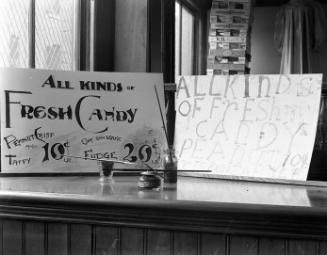 ALL KINDS OF
FRESH CANDY
PEANUT CRISP
TAFFY 10¢ LB
OUR OWN MAKE
FUDGE 20¢
ALL KINDS
OF FRESH
CANDY